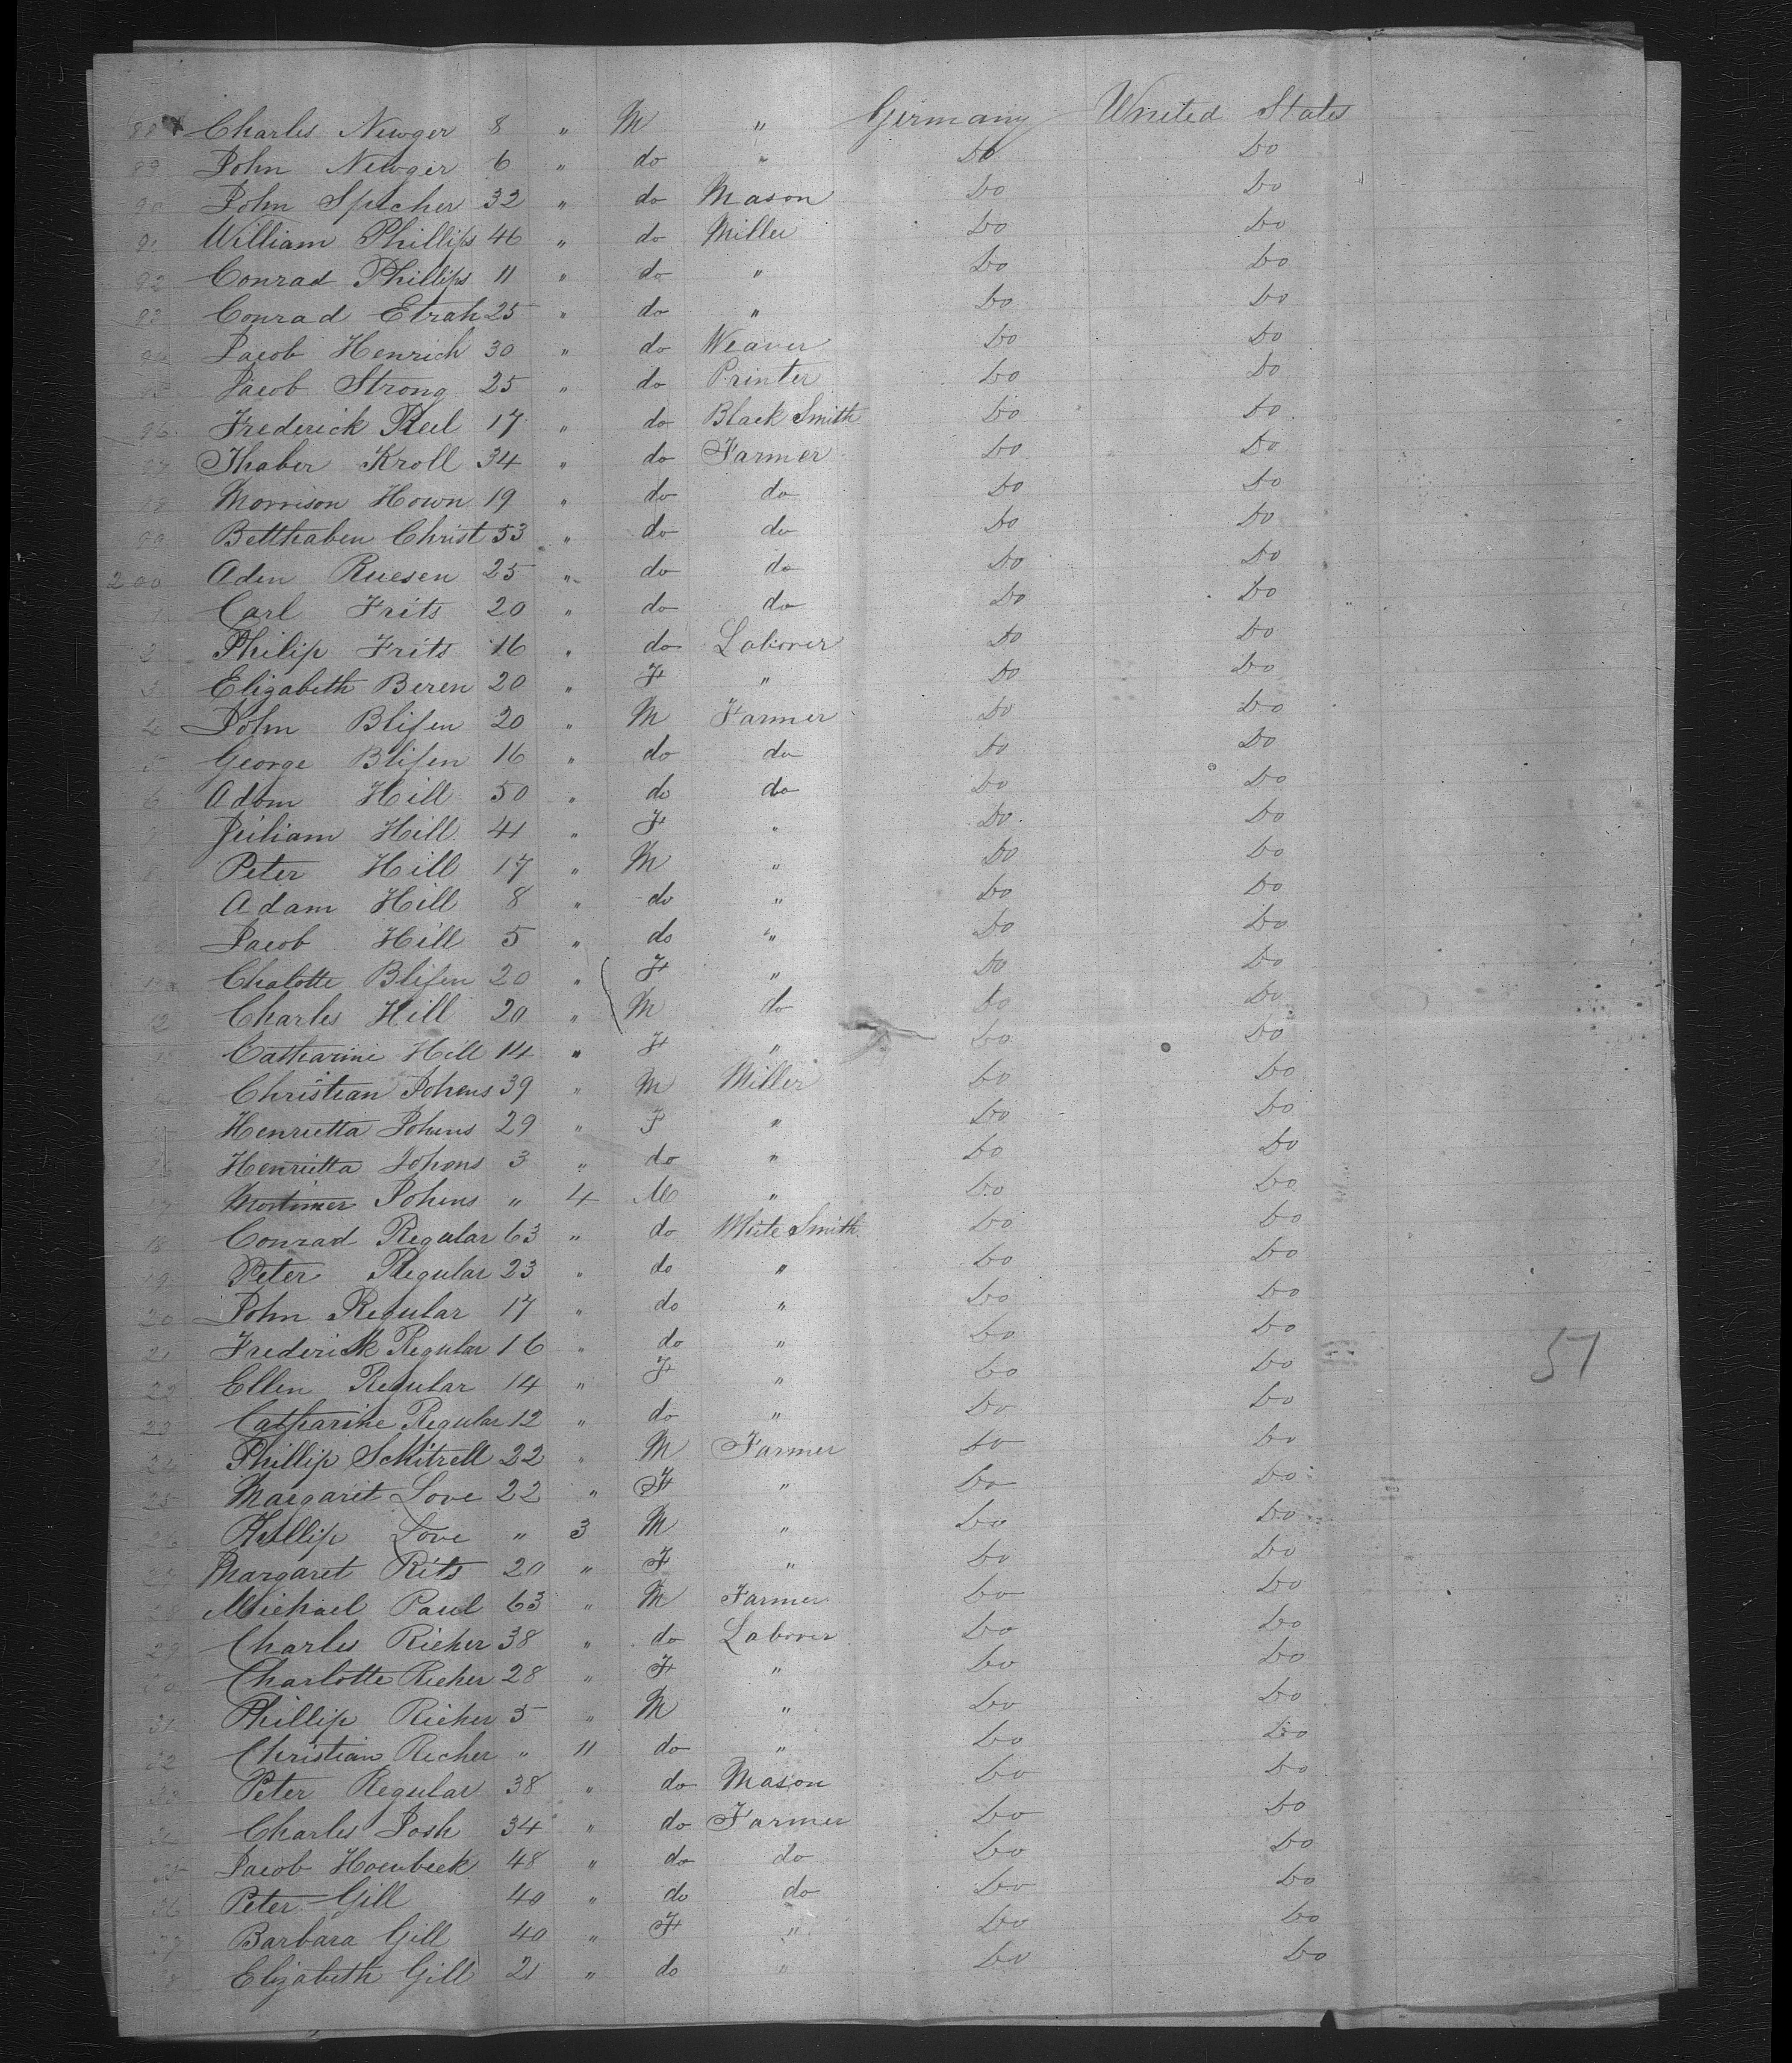 88 Charles Newger 8 " M " Germany United States
89 John Newger 6 " do " Do Do
90 John Spicher 32 " do Mason Do Do
91 William Phillips 46 " do Miller Do Do
92 Conrad Phillips 11 " do " Do Do
93 Conrad Etrah 25 " do " Do Do
94 Jacob Henrich 30 " do Weaver Do Do
95 Jacob Strong 25 " do Printer Do Do
96 Frederick Reel 17 " do Black Smith Do Do
97 Thaber Kroll 34 " do Farmer Do Do
98 Morrison Hown 19 " do do Do Do
99 Betthaben Christ 53 " do do Do Do
200 Aden Ruesen 25 " do do Do Do
1 Carl Frits 20 " do do Do Do
2 Philip Frits 16 " do Laborer Do Do
3 Elizabeth Beren 20 " F " Do Do
4 John Blifen 20 " M Farmer Do Do
5 George Blifen 16 " do do Do Do
6 Adam Hill 50 " do do Do Do
Juliam Hill 41 " F " Do Do
8 Peter Hill 17 " M " Do Do
Adam Hill 8 " do " Do Do
Jacob Hill 5 " do " Do Do
Chalotte Blifen 20 " F " Do Do
12 Charles Hill 20 " M do Do Do
Catharine Hill 14 " F " Do Do
Christian Johens 39 " M Miller Do Do
Henrietta Johens 29 " F " Do Do
16 Henrietta Johons 3 " do " Do Do
17 Mortimer Johens " 4 M " Do Do
18 Conrad Regular 63 " do White Smith Do Do
19 Peter Regular 23 " do " Do Do
20 John Regular 17 " do " Do Do
21 Frederick Regular 16 " do " Do Do
22 Ellen Regular 14 " F " Do Do
23 Catharine Regular 12 " do " Do Do
24 Phillip Schitrell 22 " M Farmer Do Do
25 Margaret Love 22 " F " Do Do
26 Phillip Love " 3 M " Do Do
27 Margaret Rits 20 " F " Do Do
28 Michael Paul 63 " M Farmer Do Do
29 Charles Richer 38 " do Laborer Do Do
30 Charlotte Richer 28 " F " Do Do
31 Phillip Richer 5 " M " Do Do
32 Christian Richer " 11 do " Do Do
33 Peter Regular 38 " do Mason Do Do
34 Charles Josh 34 " do Farmer Do Do
35 Jacob Hoenbeek 48 " do do Do Do
36 Peter Gill 40 " do do Do Do
37 Barbara Gill 40 " F " Do Do
38 Elizabeth Gill 21 " do " Do Do
51